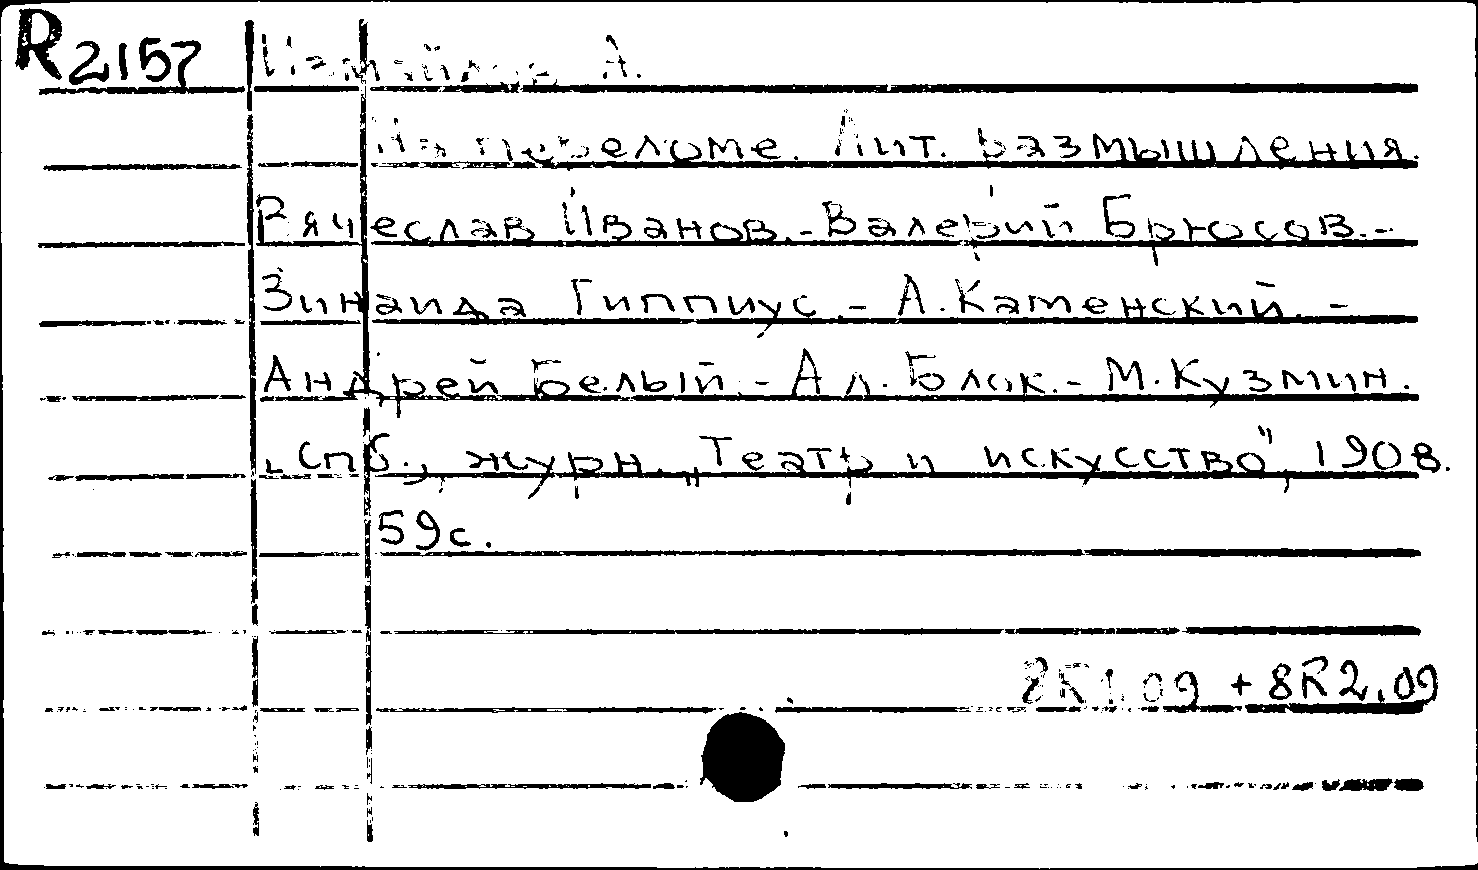 R2157 Измайлов А.
На переломе. Лит. размышления.
Вячеслав Иванов.-Валерий Брюсов.-
Зинаида Гиппиус.- А.Каменский.-
Андрей Белый.- Ал. Блок.- М.Кузмин.
Спб., журн. „Театр и искусство", 1908.
59с.
8R1.09 + 8R2.09